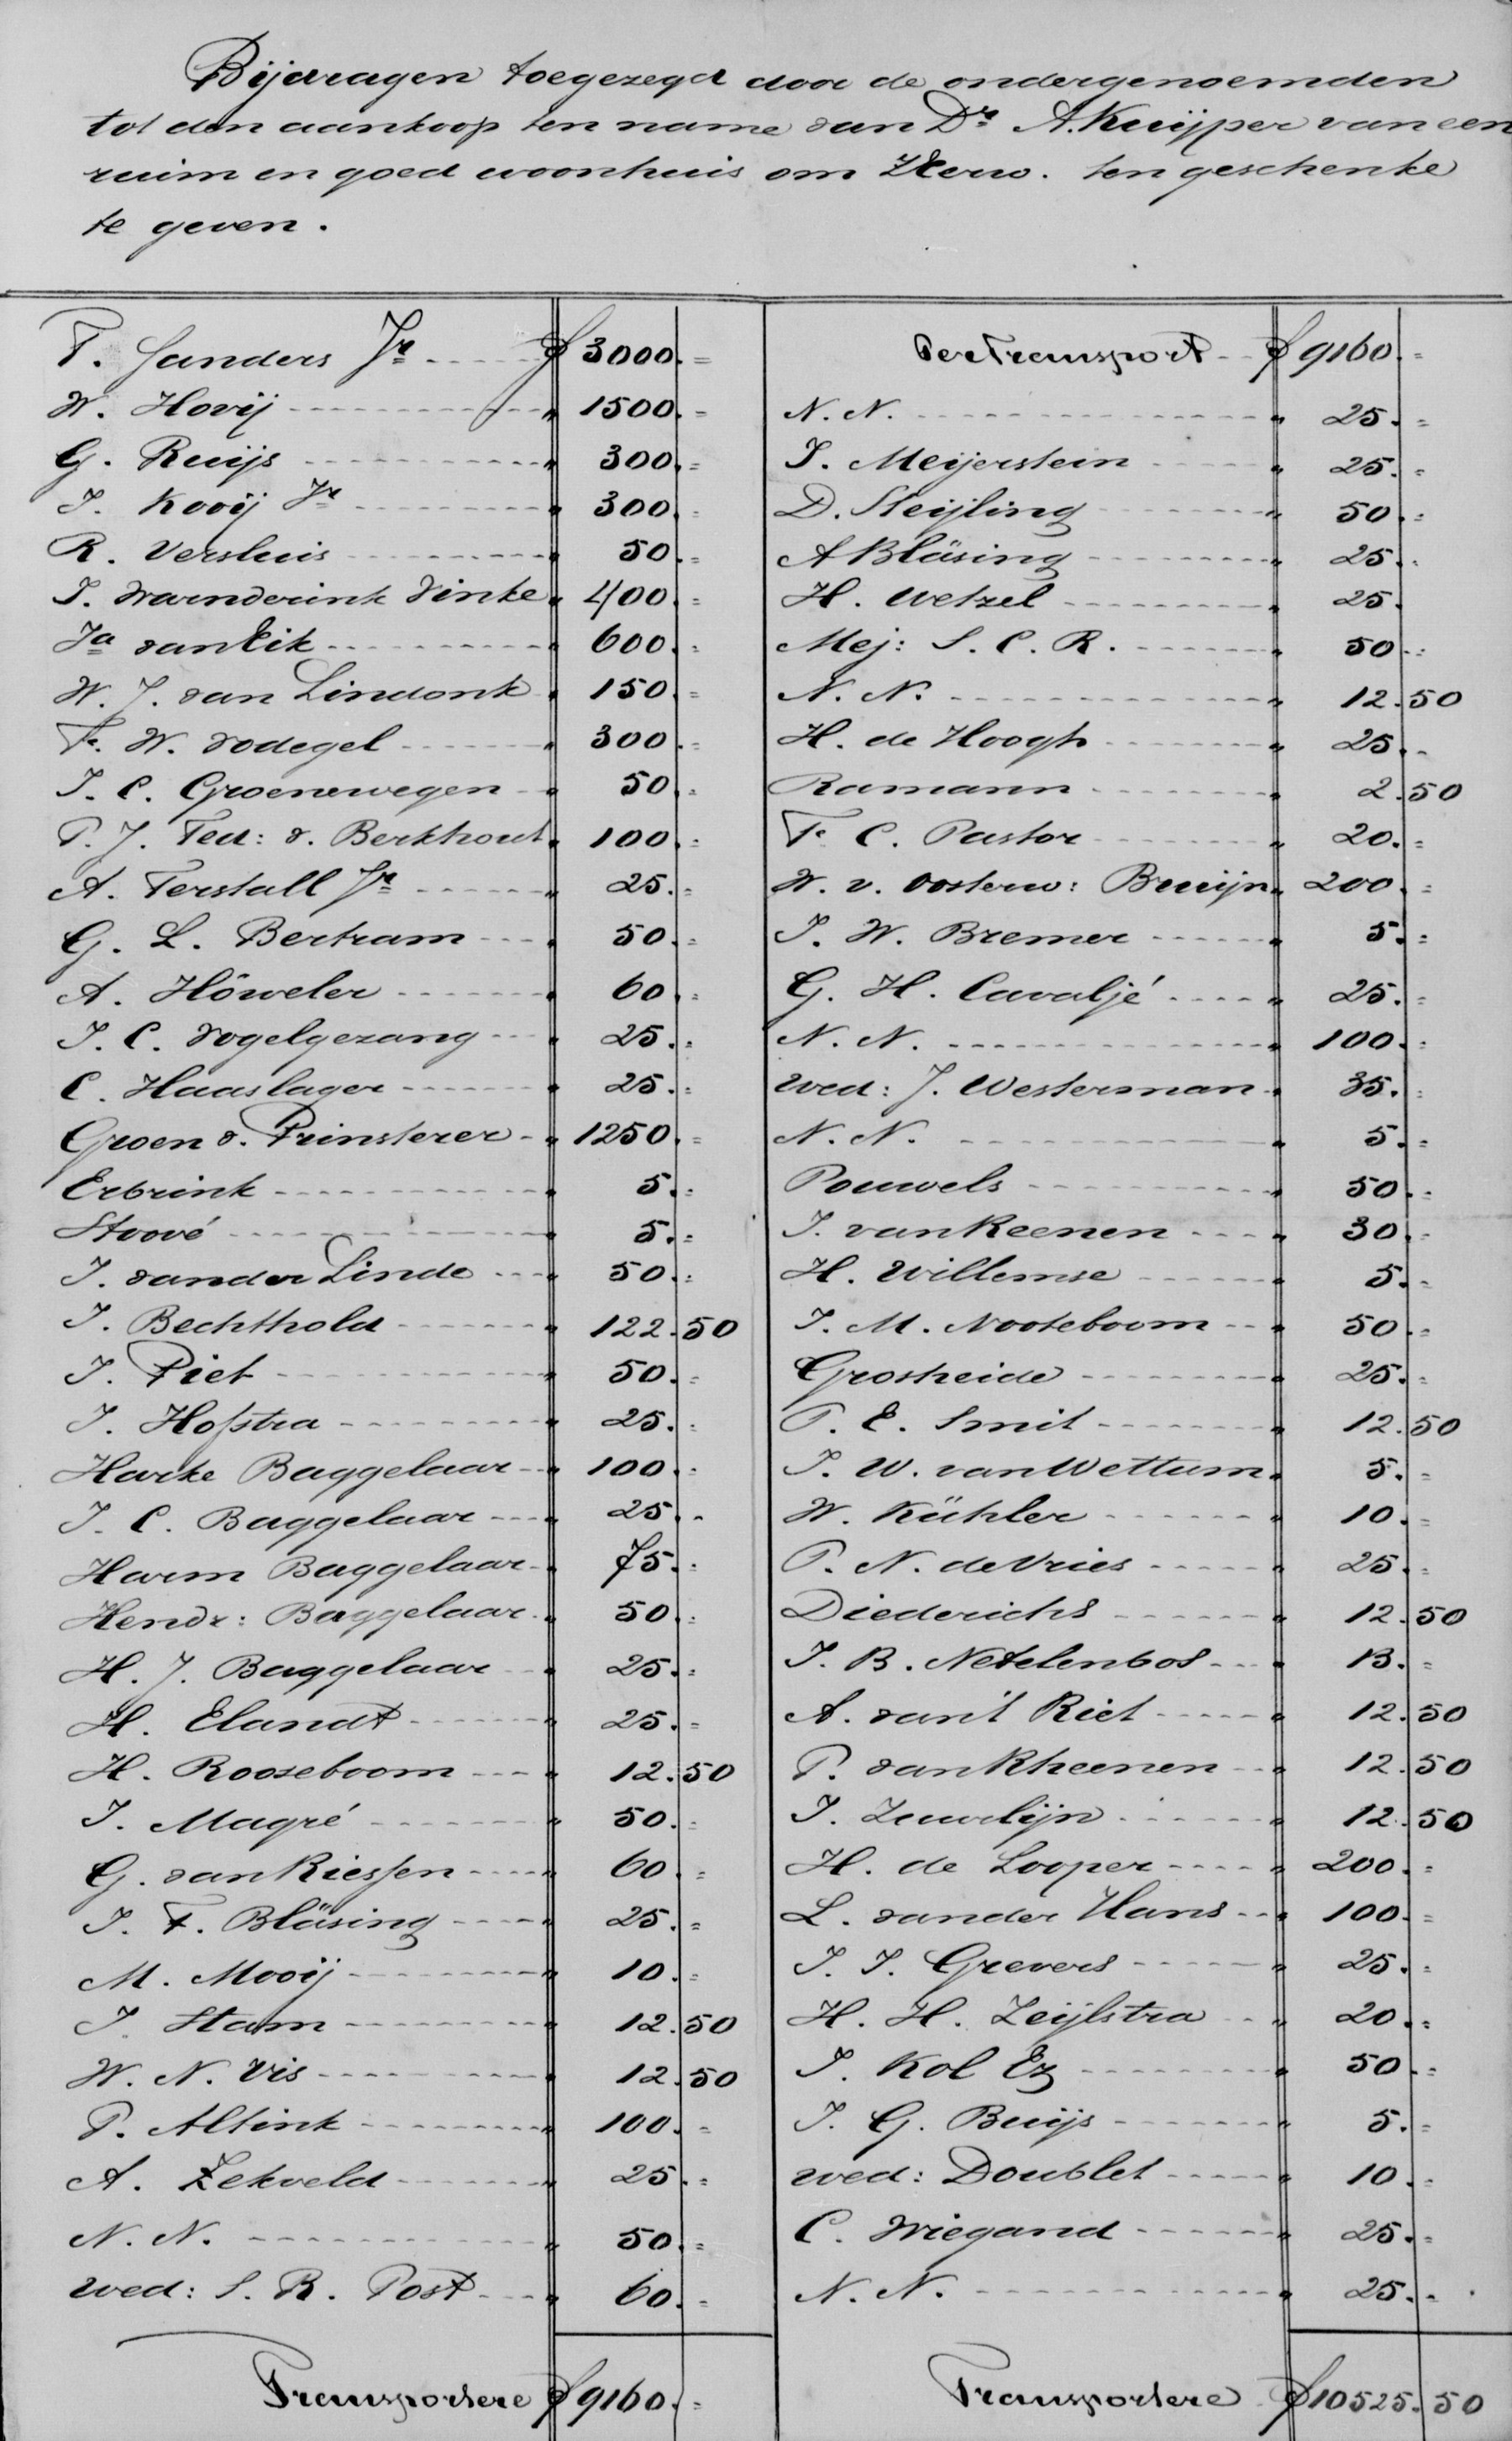 Bijdragen toegezegd door de ondergenoemden
tot den aankoop ten name van Dr. A. Kuijper van een
ruim en goed woonhuis om ZEerw. ten geschenke
te geven.
P. Sanders Jr ƒ 3000. =
W. Hovij " 1500. =
G. Ruijs " 300. =
J. Kooij Jr " 300. =
R. Versluis " 50. =
J. Warnderink Vinke " 400. =
Ja van Eik " 600. =
W. J. van Lindonk " 150. =
F. W. Vodegel " 300. =
J. C. Groenewegen " 50. =
P. J. Ted: v. Berkhout " 100. =
A. Terstall Jr " 25. =
G. L. Bertram " 50. =
A. Höweler " 60. =
J. C. Vogelgezang " 25. =
C. Haaslager " 25. =
Groen v. Prinsterer " 1250. =
Erbrink " 5. =
Stroové " 5. =
J. van der Linde " 50. =
J. Bechthold " 122. 50
J. Piet " 50. =
J. Hofstra " 25. =
Harke Baggelaar " 100. =
J. C. Baggelaar " 25. =
Harm Baggelaar " 75. =
Hendr: Baggelaar " 50. =
H. J. Baggelaar " 25. =
H. Elandt " 25. =
H. Rooseboom " 12. 50
J. Magré " 50. =
G. van Riessen " 60. =
J. F. Bläsing " 25. =
M. Mooij " 10. =
J. Stam " 12. 50
W. N. Vis " 12. 50
P. Altink " 100. =
A. Zekveld " 25. =
N. N. " 50. =
Wed: S. R. Post " 60. =
Transportere ƒ 9160. =
Per Transport ƒ 9160. =
N. N. " 25. =
J. Meijerstein " 25. =
D. Steijling " 50. =
A Bläsing " 25. =
H. Wetzel " 25.
Mej: S. C. R. " 50 =
N. N. " 12. 50
H. de Hoogh " 25. =
Ramann " 2. 50
F. C. Pastor " 20. =
W. v. Oosterw: Bruijn " 200. =
J. W. Bremer " 5. =
G. H. Cavaljé " 25. =
N. N. " 100. =
Wed: J. Westerman " 35. =
N. N. " 5. =
Pouwels " 50. =
J. van Keenen " 30. =
H. Willemse " 5. =
J. M. Nooteboom " 50. =
Grosheide " 25. =
P. E. Smit " 12. 50
J. W. van Wettum " 5. =
W. Kühler " 10. =
P. N. de Vries " 25. =
Diederichs " 12. 50
J. B. Netelenbos " 13. =
A. van 't Riet " 12. 50
P. van Rheenen " 12. 50
J. Zuurlijn " 12. 50
H. de Looper " 200. =
L. van der Hans " 100. =
J. J. Grevers " 25. =
H. H. Zeijlstra " 20. =
J. Kol Ez " 50. =
J. G. Buijs " 5. =
Wed: Doublet " 10. =
C. Wiegand " 25. =
N. N. " 25. =
Transportere ƒ 10525. 50